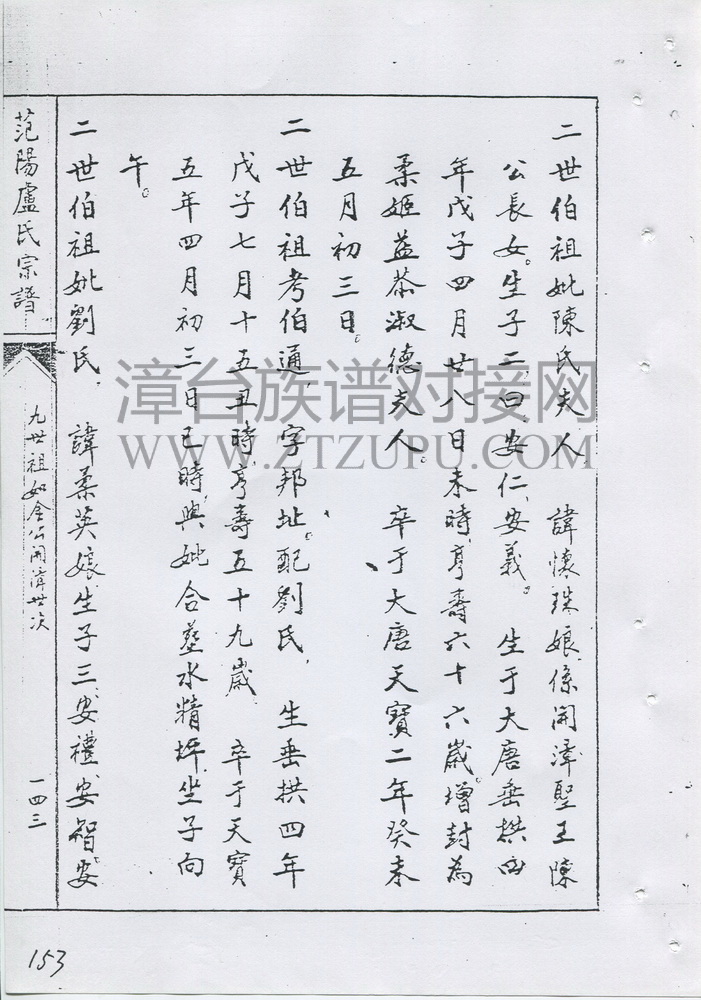 二世伯祖妣陳氏夫人 諱懷珠娘係開漳聖王陳
公長女。生子二,曰安仁、安義。 生于大唐垂拱四
年戊子四月廿八日未時,亨壽六十六歲。增封為
柔姬益恭淑德夫人。 卒于大唐天寶二年癸未
五月初三日。
二世伯祖考伯通,字邦址。配劉氏, 生垂拱四年
戊子七月十五丑時,亨壽五十九歲 卒于天寶
五年四月初三日巳時,與妣合塟水精坪,坐子向
午。
二世伯祖妣劉氏, 諱柔英娘生子三安禮安智。安
范陽盧氏宗譜
九世祖如金公開漳世次
一四三
153
漳台族谱对接网
WWW.ZTZUPU.COM